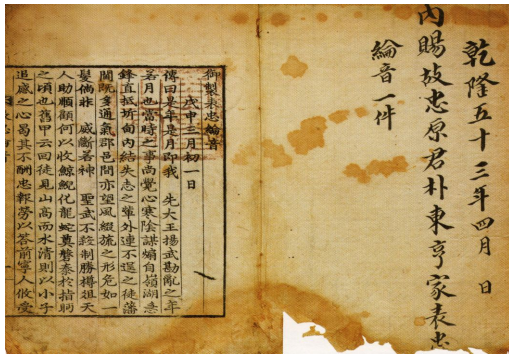 乾隆五十三年四月 日
內賜故忠原君朴東亨家表忠
綸音一件
御製表忠綸音
戊申三月初一日
傳曰是年是月卽我 先大王揚武勘亂之年
若月也當時之事尚覺心寒陰謀煽自嶺湖
鋒直抵圻甸內結失志之輩外連不逞之徒藩
閫旣多通氣郡邑間亦望風綴旒之形危如一
髮倘非 威斷若神 聖武不殺制勝樽俎天
人助順顧何以收鯨鯢化龍蛇奠磐泰於指眄
之頃也舊甲云回徒見山高而水淸則以小子
追感之心曷其不酬忠報勞以答前寧人攸受